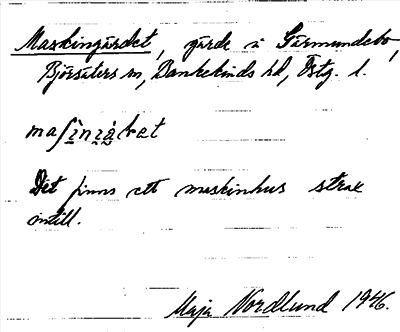 Maskingärdet, gärde å Gärmundebo,
Björsäters sn, Bankekinds hd, Östg. l.
Det finns ett maskinhus strax
intill.
Maja Nordlund 1946.